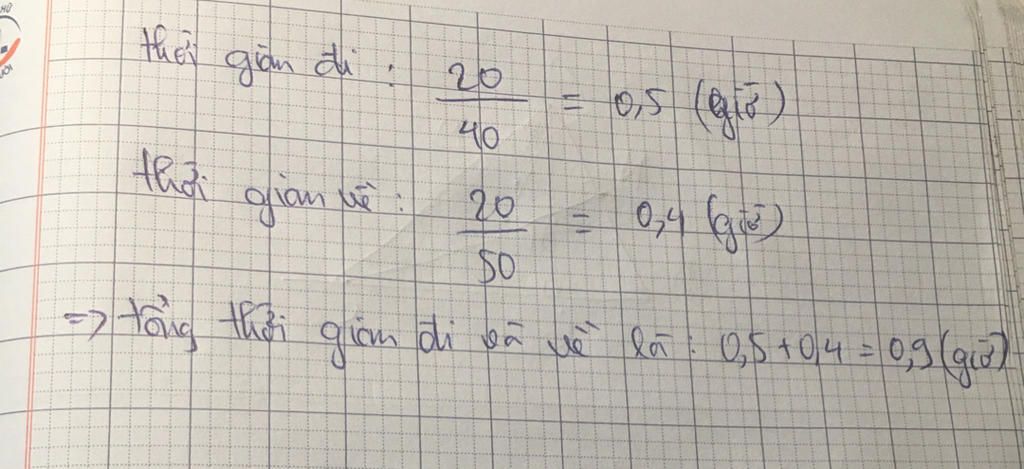 thời gian đi : 20/40 = 0,5 (giờ)
thời gian về : 20/50 = 0,4 (giờ)
=> tổng thời gian đi và về là : 0,5 + 0,4 = 0,9 (giờ)